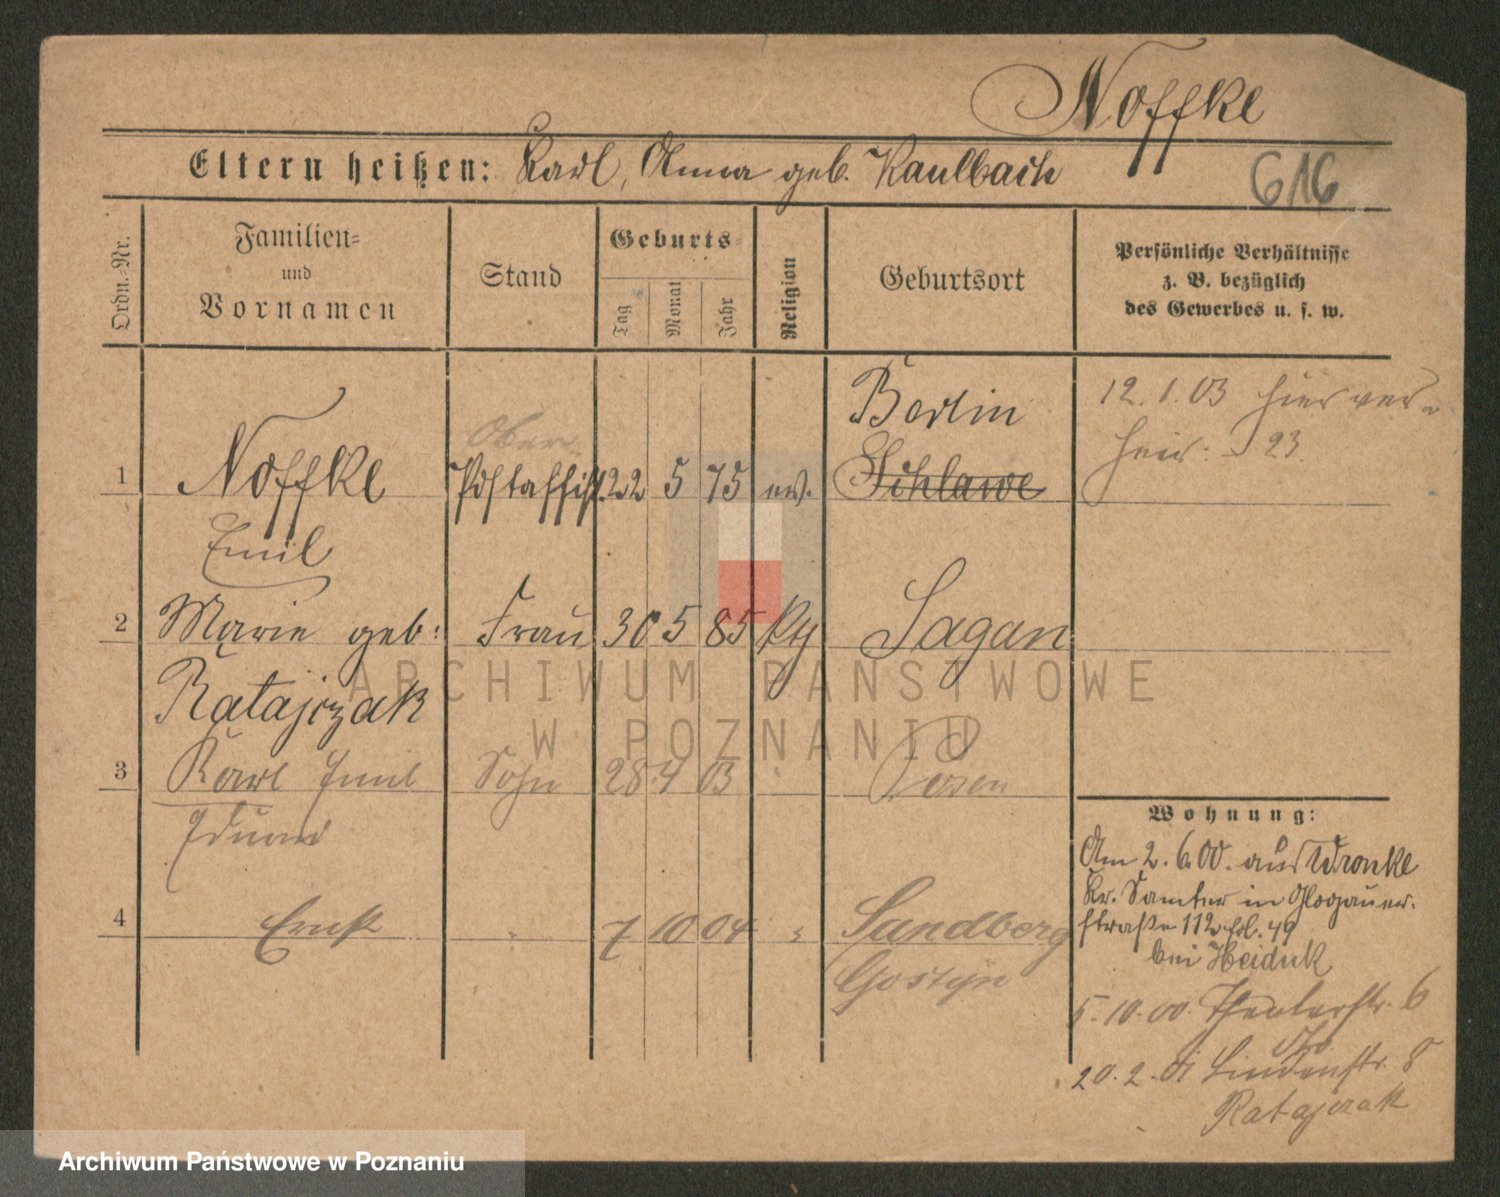 Noffke
Eltern heißen: Karl, Anna geb. Kaulbach
616
Ordn.-Nr.
Familien-
und
Vornamen
Stand
Geburts-
Tag
Monat
Jahr
Religion
Geburtsort
Persönliche Verhältnisse
z. B. bezüglich
des Gewerbes u. s. w.
Berlin
12. 1. 03 hier ver-
heir: 23
Ober
1 Noffke Postassist. 22 5 75 ev. Schlawe
Emil
2 Marie geb: Frau 30 5 85 Sagan
Ratajczak
3 Karl Emil Sohn 28 4 03 " Posen
Eduard
4 Ernst " 7 10 04 " Sandberg
Gostyn
Wohnung:
Am 2. 6. 00. aus Wronke
Kr. Samter in Glogauer-
straße 112 fol. 49
bei Heiduk
5. 10. 00. Theaterstr. 6
20. 2. 01 Lindenstr. 8
Ratajczak
ARCHIWUM PAŃSTWOWE
W POZNANIU
Archiwum Państwowe w Poznaniu